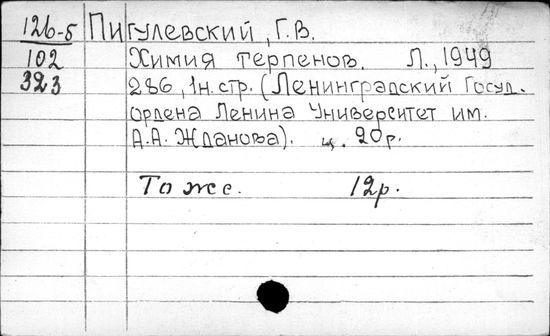 126-5 Пигулевский, Г.В.
102 Химия терпенов. Л., 1949
323 286, 1н. стр. (Ленинградский Госуд.
ордена Ленина Университет им.
А.А. Жданова). ц. 20р.
То же. 12р.